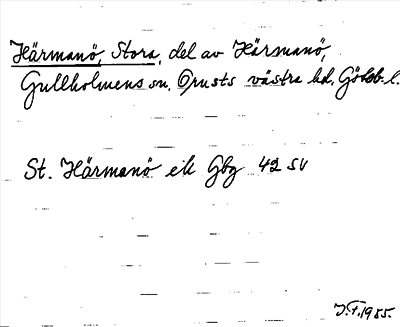 Härmanö, Stora, del av Härmanö,
Gullholmens sn. Orusts västra hd. Götebl.
St. Härmanö ek Gbg 42 SV
J.F. 1985.